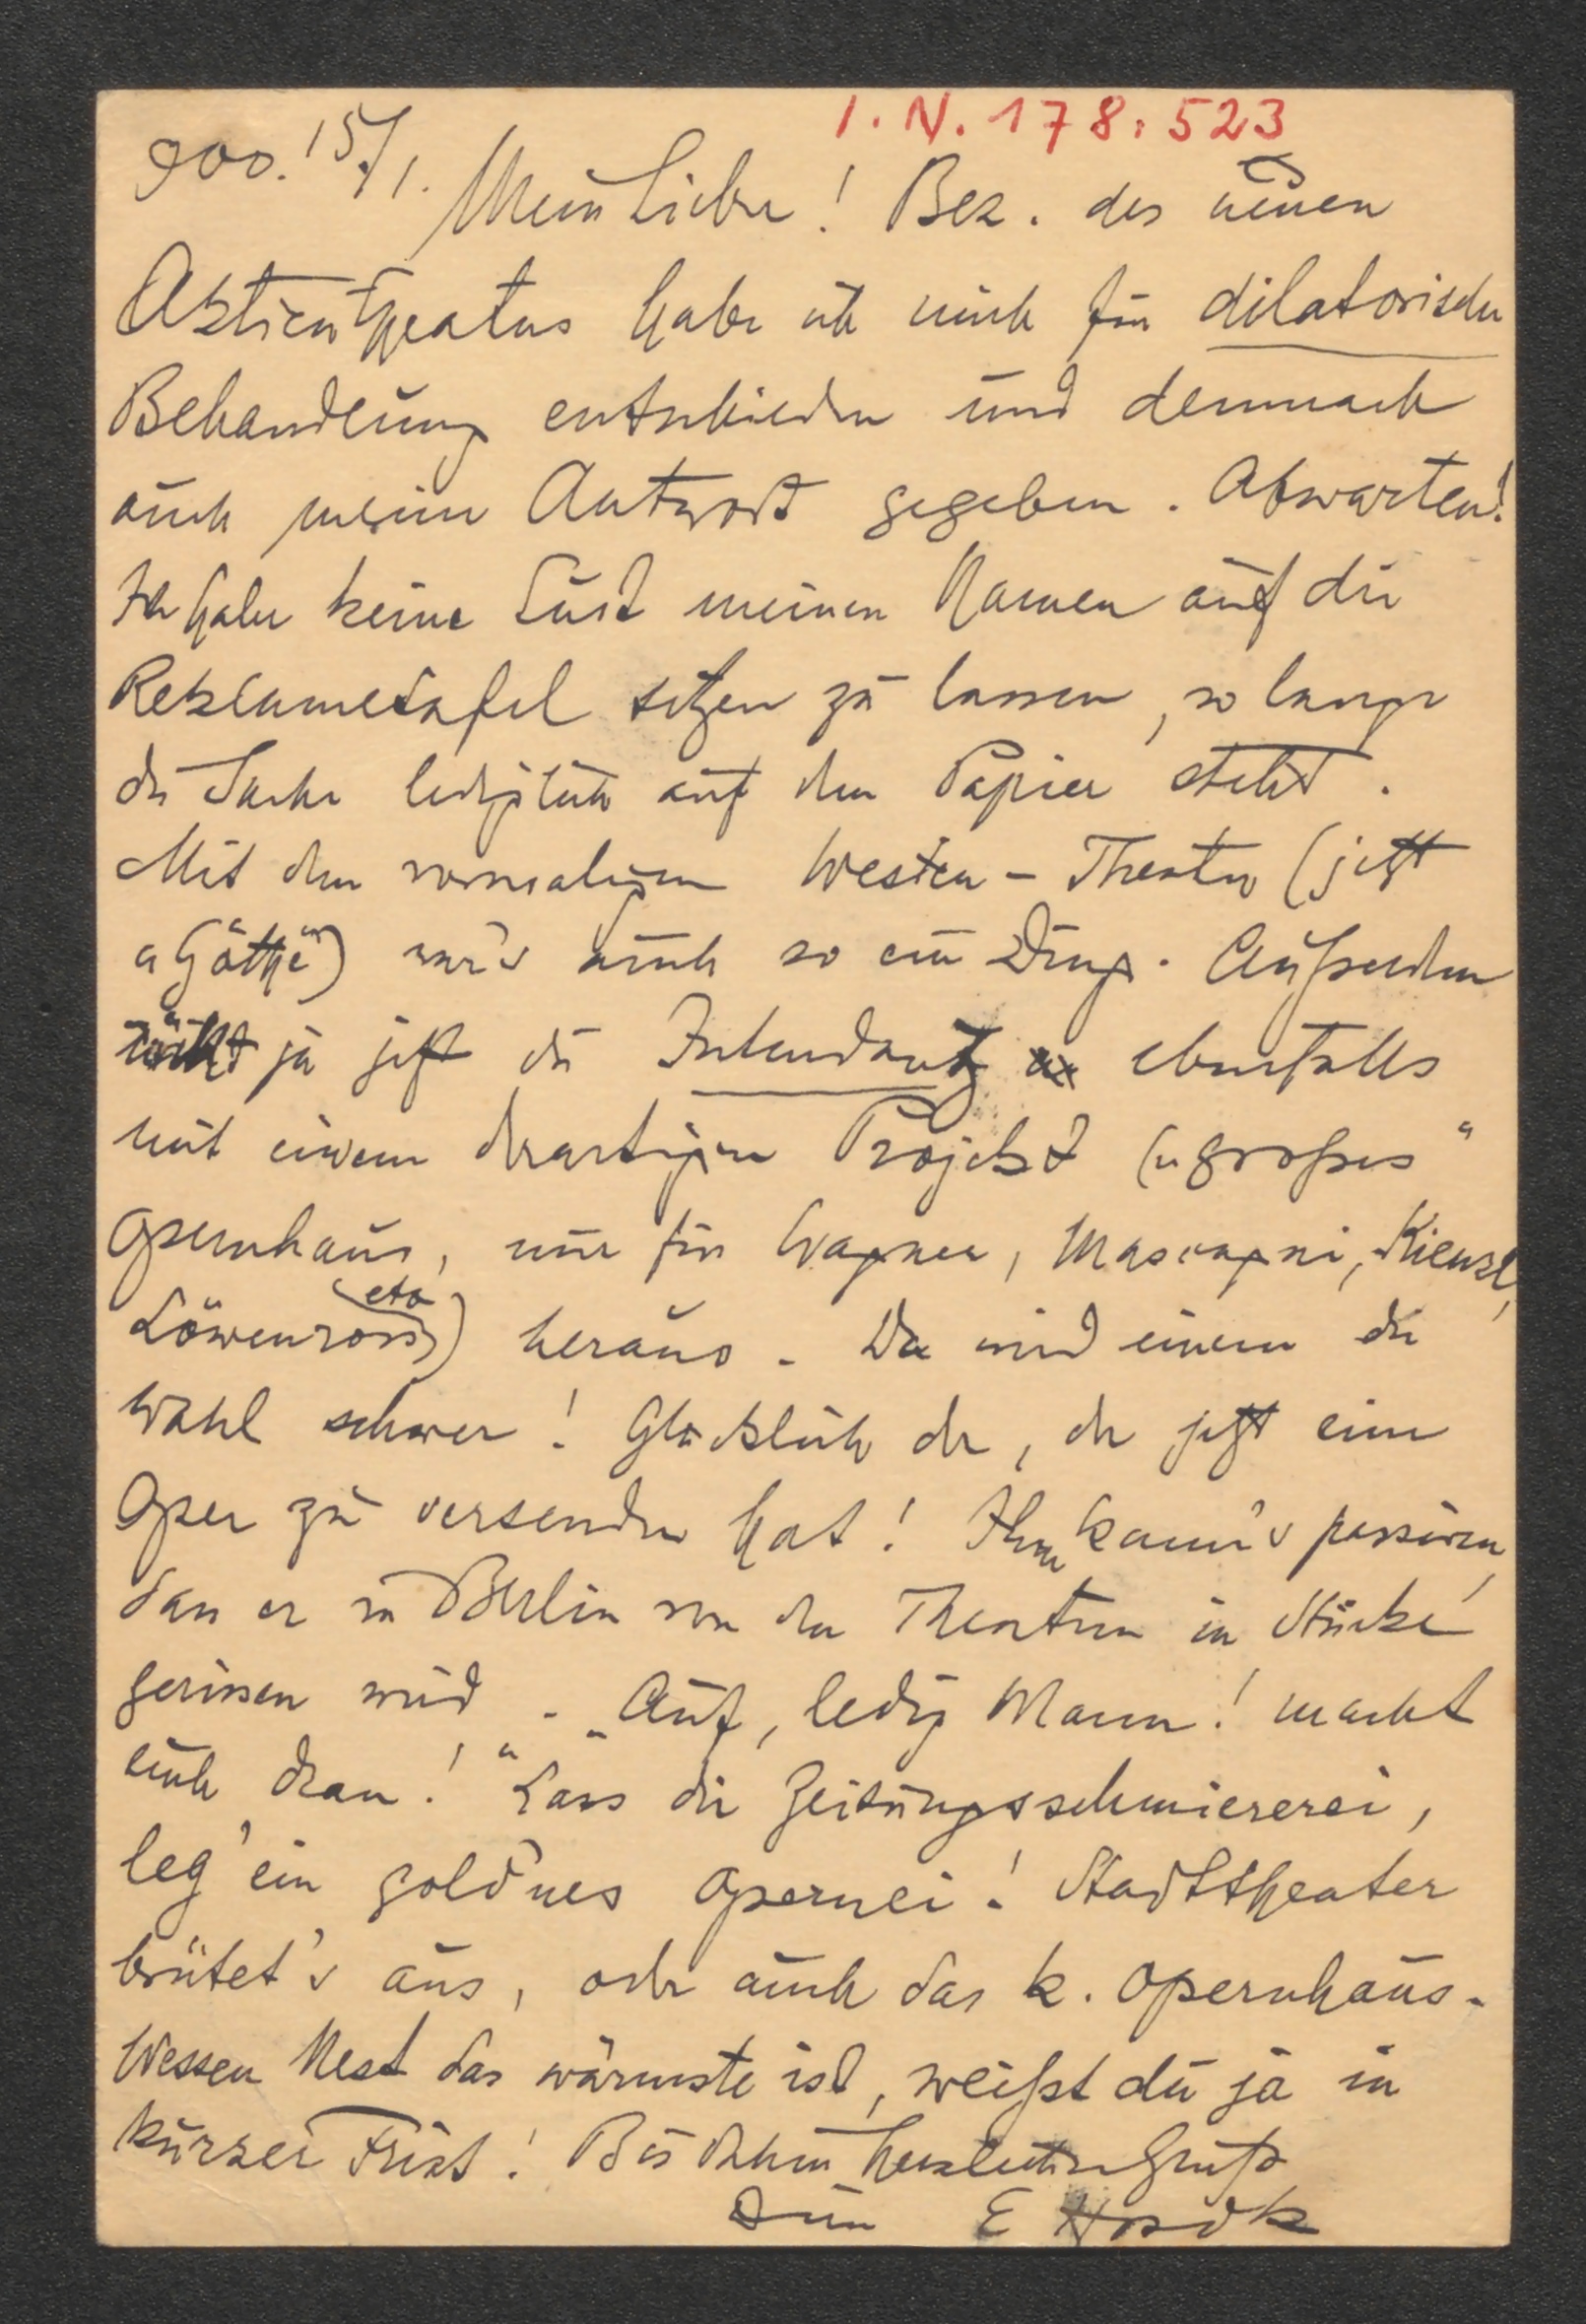 I. N. 178.523
900. 15/1. Mein Lieber! Bez. des neuen
Aktientheaters habe ich mich für dilatorische
Behandlung entschieden und demnach
auch meine Antwort gegeben. Abwarten!
Ich habe keine Lust meinen Namen auf die
Reklametafel setzen zu lassen, so lange
die Sache lediglich auf dem Papier steht.
Mit dem vormaligen Westen-Theater (jetzt
„Göthe“) war's auch so ein Ding. Außerdem
rückt ja jetzt die Intendantz ebenfalls
mit einem derartigen Projekt („großes“
Opernhaus, nur für Wagner, Mascagni, Kienzl,
Löwenross etc) heraus. Da wird einem die
Wahl schwer! Glücklich der, der jetzt eine
Oper zu versenden hat! Ihm kann's passiren,
dass er in Berlin von den Theatern in Stücke
gerissen wird. – „Auf, ledig Mann! macht
euch dran!“ Lass die Zeitungsschmiererei,
leg' ein gold'nes Opernei! Stadttheater
brütet's aus, oder auch das k. Opernhaus.
Wessen Nest das wärmste ist, weißt du ja in
kurzer Frist! Bis dahin herzlichen Gruß
Dein E